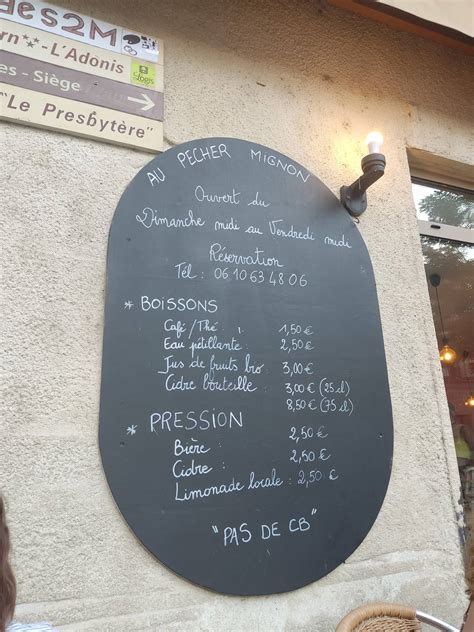 des2M
rn** - L'Adonis
logis
es - Siège
"Le Presbytère"
AU PECHER MIGNON
Ouvert du
Dimanche midi au Vendredi midi
Réservation
Tél : 06 10 63 48 06
* BOISSONS
Café / Thé : 1,50 €
Eau pétillante : 2,50 €
Jus de fruits bio : 3,00 €
Cidre bouteille : 3,00 € (25 cl)
8,50 € (75 cl)
* PRESSION
Bière : 2,50 €
Cidre : 2,50 €
Limonade locale : 2,50 €
"PAS DE CB"